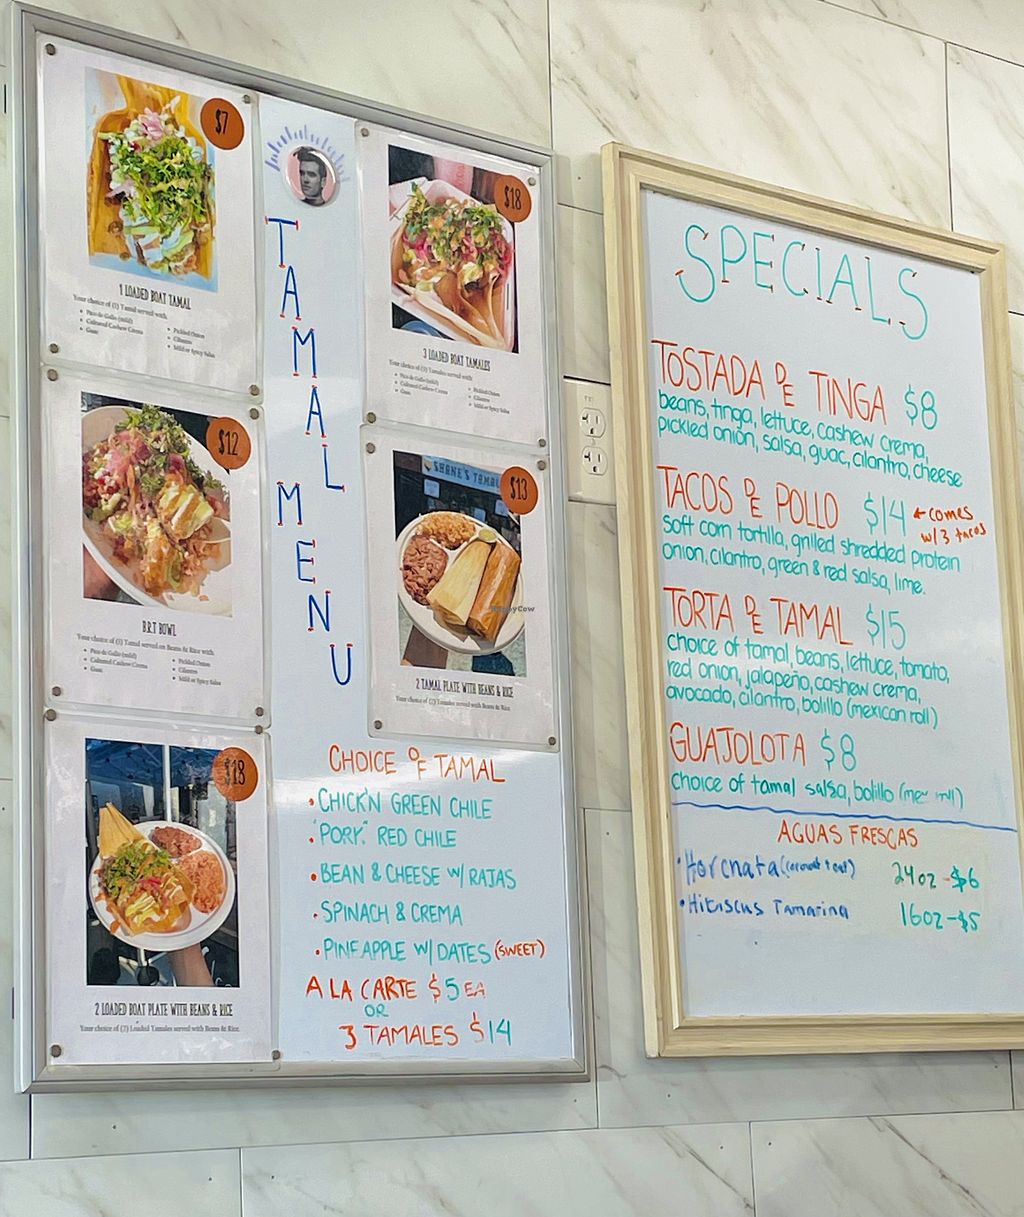 $7
1 LOADED BOAT TAMAL
Your choice of (1) Tamal served with:
Pico de Gallo (mild)
Cultured Cashew Crema
Guac
Pickled Onion
Cilantro
Mild or Spicy Salsa
$12
B.R.T BOWL
Your choice of (1) Tamal served on Beans & Rice with:
Pico de Gallo (mild)
Cultured Cashew Crema
Guac
Pickled Onion
Cilantro
Mild or Spicy Salsa
$18
2 LOADED BOAT PLATE WITH BEANS & RICE
Your choice of (2) Loaded Tamales served with Beans & Rice.
TAMAL MENU
$18
3 LOADED BOAT TAMALES
Your choice of (3) Tamales served with:
Pico de Gallo (mild)
Cultured Cashew Crema
Guac
Pickled Onion
Cilantro
Mild or Spicy Salsa
SHANE'S TAMAL
$13
HappyCow
2 TAMAL PLATE WITH BEANS & RICE
Your choice of (2) Tamales served with Beans & Rice.
CHOICE OF TAMAL
• CHICK'N GREEN CHILE
• "PORK" RED CHILE
• BEAN & CHEESE W/ RAJAS
• SPINACH & CREMA
• PINEAPPLE W/ DATES (SWEET)
A LA CARTE $5 EA
OR
3 TAMALES $14
SPECIALS
TOSTADA DE TINGA $8
beans, tinga, lettuce, cashew crema,
pickled onion, salsa, guac, cilantro, cheese
TACOS DE POLLO $14 ← comes
w/ 3 tacos
soft corn tortilla, grilled shredded protein
onion, cilantro, green & red salsa, lime.
TORTA DE TAMAL $15
choice of tamal, beans, lettuce, tomato,
red onion, jalapeño, cashew crema,
avocado, cilantro, bolillo (mexican roll)
GUAJOLOTA $8
choice of tamal salsa, bolillo
AGUAS FRESCAS
• Horchata 24oz - $6
• Hibiscus Tamarina 16oz - $5